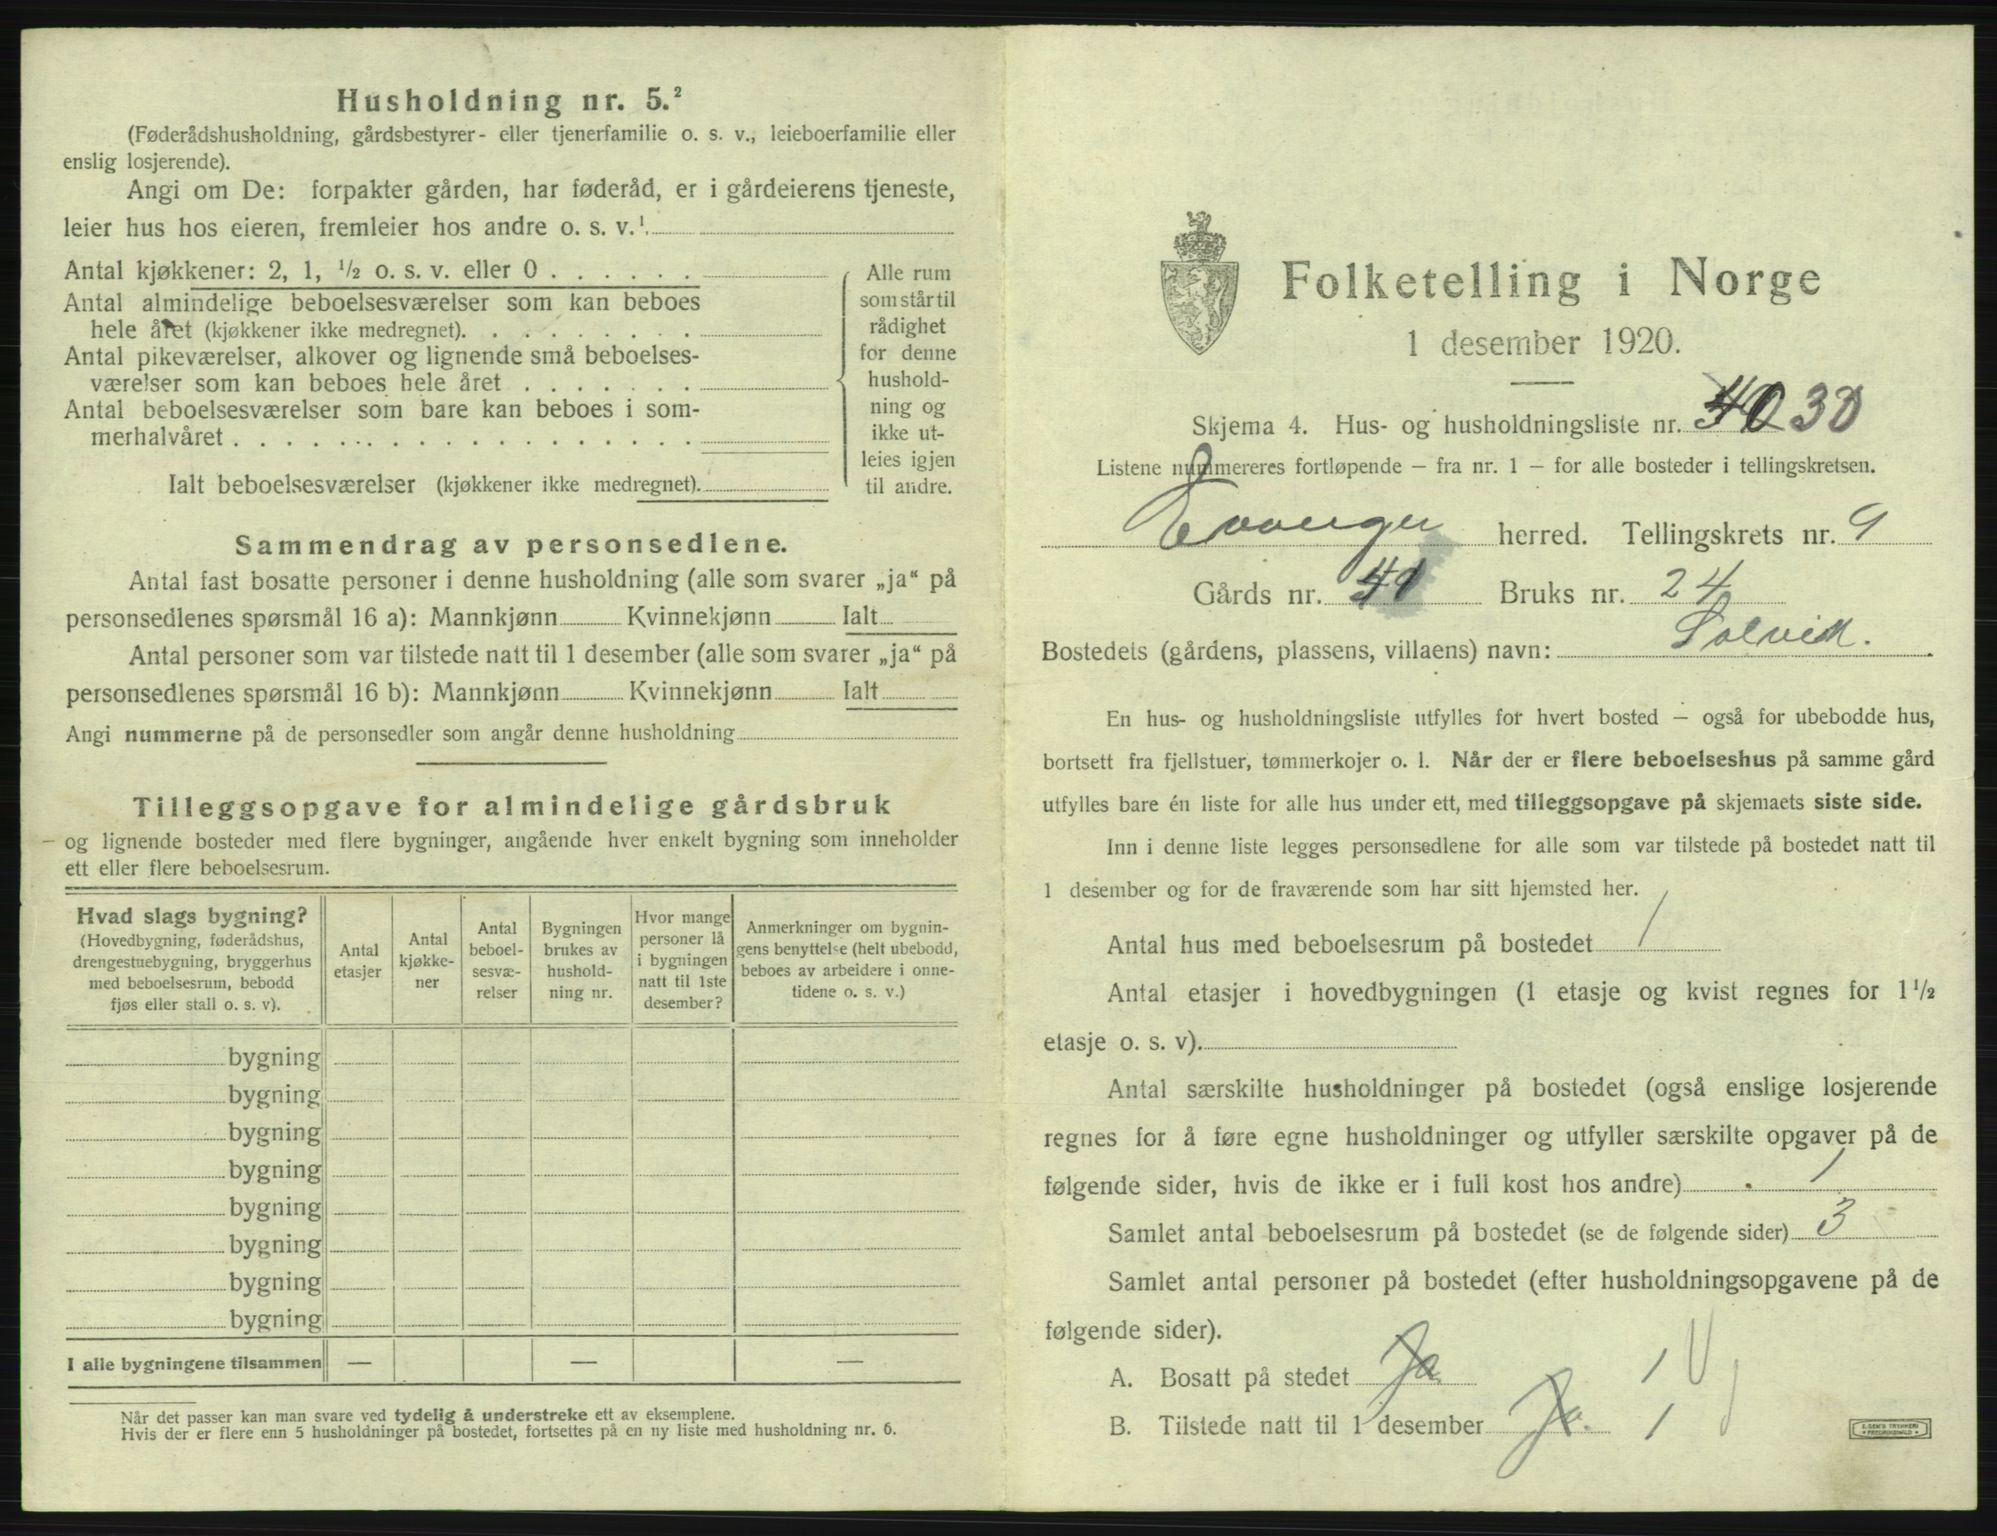 Husholdning nr. 5.²
(Føderådshusholdning, gårdsbestyrer- eller tjenerfamilie o. s. v., leieboerfamilie eller
enslig losjerende).
Angi om De: forpakter gården, har føderåd, er i gårdeierens tjeneste,
leier hus hos eieren, fremleier hos andre o. s. v.¹
Antal kjøkkener: 2, 1, ½ o. s. v. eller 0 . . . . . .
Antal almindelige beboelsesværelser som kan beboes
hele året (kjøkkener ikke medregnet). . . . . . . . .
Antal pikeværelser, alkover og lignende små beboelses-
værelser som kan beboes hele året . . . . . . .
Antal beboelsesværelser som bare kan beboes i som-
merhalvåret . . . . . . . . . . . . . . . . . .
Ialt beboelsesværelser (kjøkkener ikke medregnet).
Alle rum
som står til
rådighet
for denne
hushold-
ning og
ikke ut-
leies igjen
til andre.
Sammendrag av personsedlene.
Antal fast bosatte personer i denne husholdning (alle som svarer „ja“ på
personsedlenes spørsmål 16 a): Mannkjønn Kvinnekjønn Ialt
Antal personer som var tilstede natt til 1 desember (alle som svarer „ja“ på
personsedlenes spørsmål 16 b): Mannkjønn Kvinnekjønn Ialt
Angi nummerne på de personsedler som angår denne husholdning
Tilleggsopgave for almindelige gårdsbruk
og lignende bosteder med flere bygninger, angående hver enkelt bygning som inneholder
ett eller flere beboelsesrum.
Hvad slags bygning?
(Hovedbygning, føderådshus,
drengestuebygning, bryggerhus
med beboelsesrum, bebodd
fjøs eller stall o. s. v).
Antal
etasjer
Antal
kjøkke-
ner
Antal
beboel-
sesvæ-
relser
Bygningen
brukes av
hushold-
ning nr.
Hvor mange
personer lå
i bygningen
natt til 1ste
desember?
Anmerkninger om bygnin-
gens benyttelse (helt ubebodd,
beboes av arbeidere i onne-
tidene o. s. v.)
bygning
bygning
bygning
bygning
bygning
bygning
bygning
bygning
I alle bygningene tilsammen — — —
Når det passer kan man svare ved tydelig å understreke ett av eksemplene.
Hvis der er flere enn 5 husholdninger på bostedet, fortsettes på en ny liste med husholdning nr. 6.
Folketelling i Norge
1 desember 1920.
Skjema 4. Hus- og husholdningsliste nr. 40 38
Listene nummereres fortløpende – fra nr. 1 – for alle bosteder i tellingskretsen.
Evanger herred. Tellingskrets nr. 9
Gårds nr. 41 Bruks nr. 24
Bostedets (gårdens, plassens, villaens) navn: Solvik.
En hus- og husholdningsliste utfylles for hvert bosted – også for ubebodde hus,
bortsett fra fjellstuer, tømmerkojer o. l. Når der er flere beboelseshus på samme gård
utfylles bare én liste for alle hus under ett, med tilleggsopgave på skjemaets siste side.
Inn i denne liste legges personsedlene for alle som var tilstede på bostedet natt til
1 desember og for de fraværende som har sitt hjemsted her.
Antal hus med beboelsesrum på bostedet 1
Antal etasjer i hovedbygningen (1 etasje og kvist regnes for 1½
etasje o. s. v).
Antal særskilte husholdninger på bostedet (også enslige losjerende
regnes for å føre egne husholdninger og utfyller særskilte opgaver på de
følgende sider, hvis de ikke er i full kost hos andre) 1
Samlet antal beboelsesrum på bostedet (se de følgende sider) 3
Samlet antal personer på bostedet (efter husholdningsopgavene på de
følgende sider).
A. Bosatt på stedet Ja 1
B. Tilstede natt til 1 desember Ja. 1
E. SEM'S TRYKKERI
FREDRIKSHALD